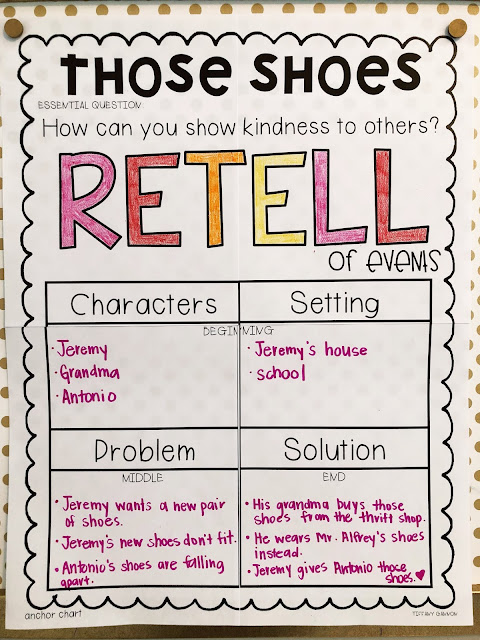 THOSE SHOES
ESSENTIAL QUESTION:
How can you show kindness to others?
RETELL
of EVENTS
Characters
Setting
BEGINNING
· Jeremy
· Grandma
· Antonio
· Jeremy's house
· school
Problem
Solution
MIDDLE
END
• Jeremy wants a new pair
of shoes.
• Jeremy's new shoes don't fit.
• Antonio's shoes are falling
apart.
• His grandma buys those
shoes from the thrift shop.
• He wears Mr. Alfrey's shoes
instead.
• Jeremy gives Antonio those
shoes. ♥
anchor chart
TIFFANY GANNON